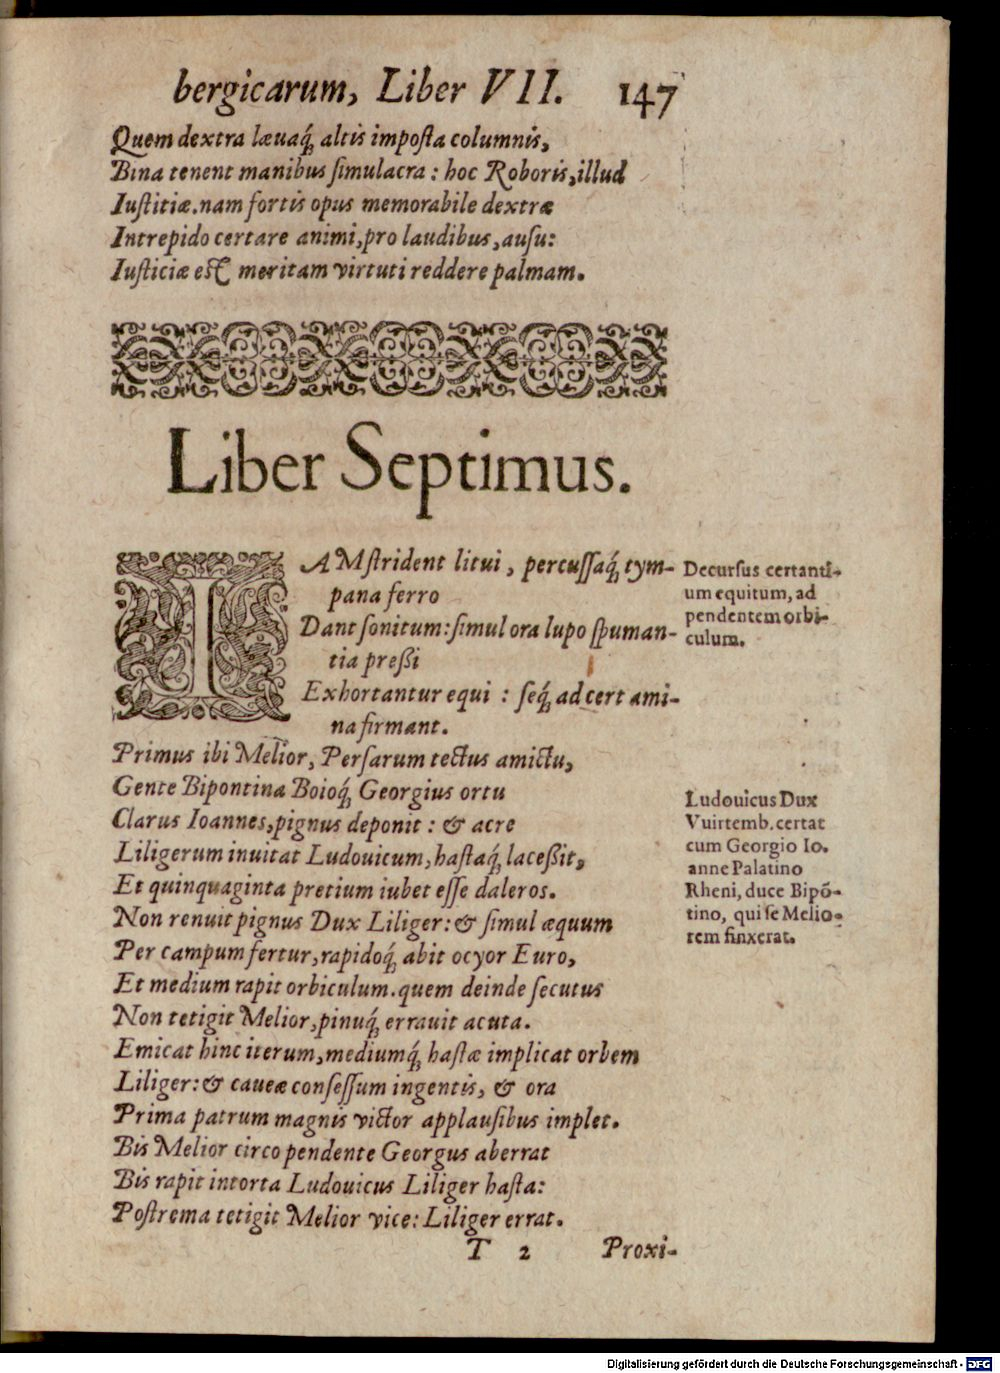 bergicarum, Liber VII. 147
Quem dextra læuaq́; altis imposta columnis,
Bina tenent manibus simulacra: hoc Roboris, illud
Iustitiæ. nam fortis opus memorabile dextræ
Intrepido certare animi, pro laudibus, ausu:
Iusticiæ est meritam virtuti reddere palmam.
Liber Septimus.
IAM strident litui, percussaq́; tym-
pana ferro
Dant sonitum: simul ora lupo spuman-
tia preßi
Exhortantur equi: seq́; ad certami-
na firmant.
Decursus certanti-
um equitum, ad
pendentem orbi-
culum.
Primus ibi Melior, Persarum tectus amictu,
Gente Bipontina Boioq́; Georgius ortu
Clarus Ioannes, pignus deponit: & acre
Liligerum inuitat Ludouicum, hastaq́; laceßit,
Et quinquaginta pretium iubet esse daleros.
Non renuit pignus Dux Liliger: & simul æquum
Per campum fertur, rapidoq́; abit ocyor Euro,
Et medium rapit orbiculum. quem deinde secutus
Non tetigit Melior, pinuq́; errauit acuta.
Emicat hinc iterum, mediumq́; hastæ implicat orbem
Liliger: & caueæ consessum ingentis, & ora
Prima patrum magnis victor applausibus implet.
Bis Melior circo pendente Georgus aberrat
Bis rapit intorta Ludouicus Liliger hasta:
Postrema tetigit Melior vice: Liliger errat.
Ludouicus Dux
Vuirtemb. certat
cum Georgio Io.
anne Palatino
Rheni, duce Bipō-
tino, qui se Melio-
rem finxerat.
T 2 Proxi-
Digitalisierung gefördert durch die Deutsche Forschungsgemeinschaft - DFG